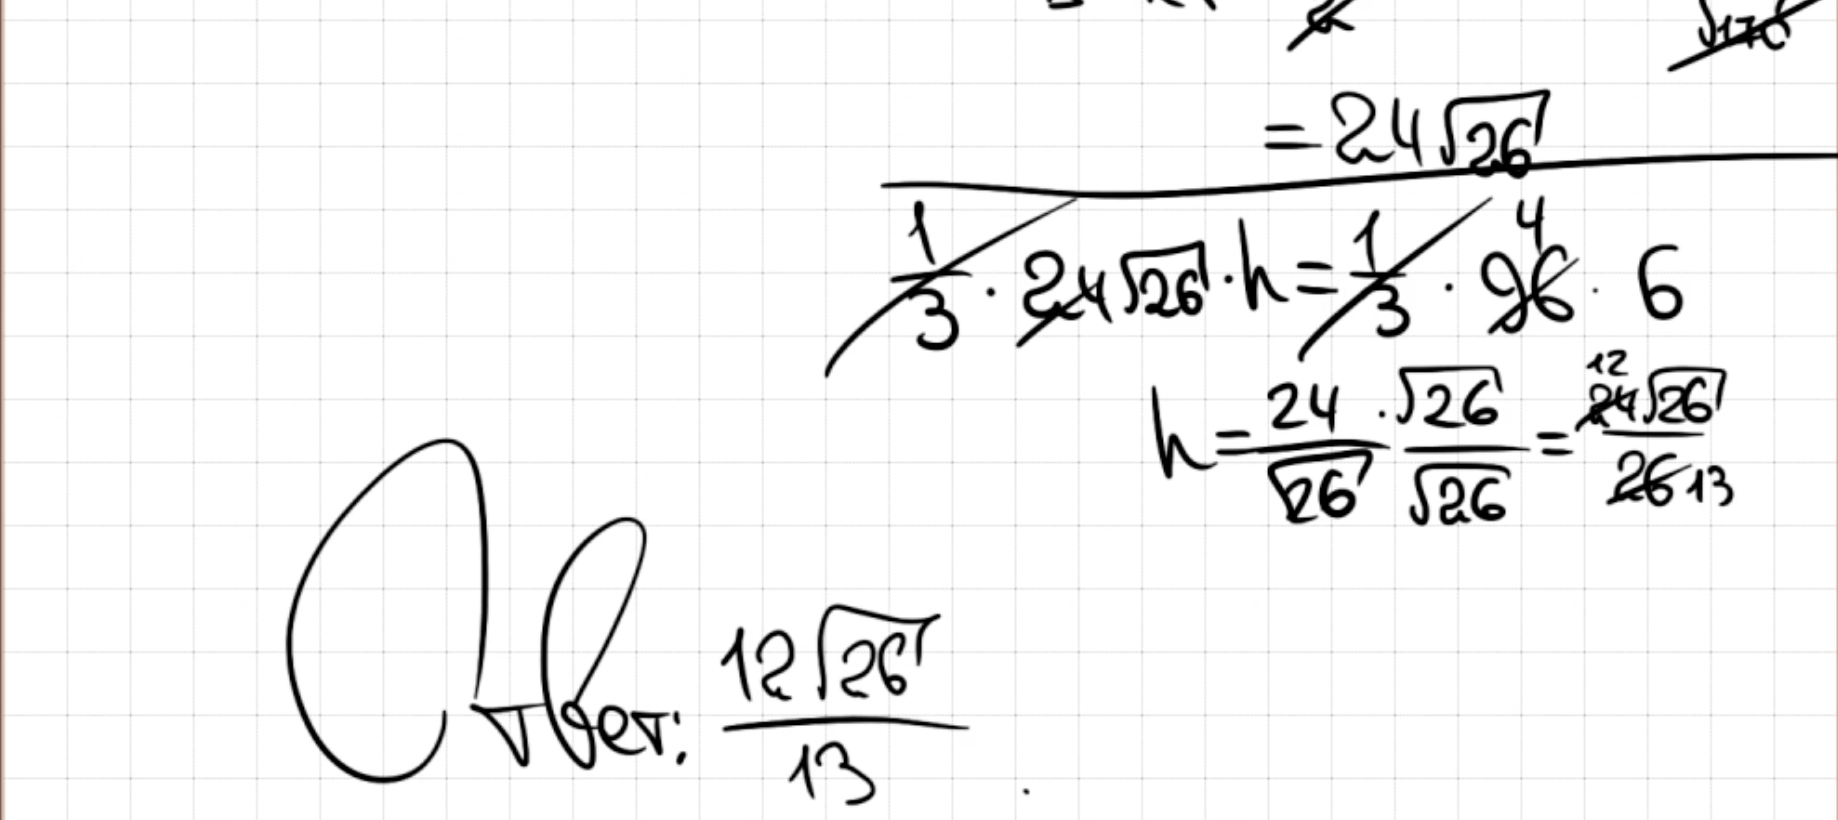 √170
= 24√26
1/3 · 24√26 · h = 1/3 · 96 4 · 6
h = 24/√26 · √26/√26 = 24 12 √26/26 13
Ответ: 12√26/13.